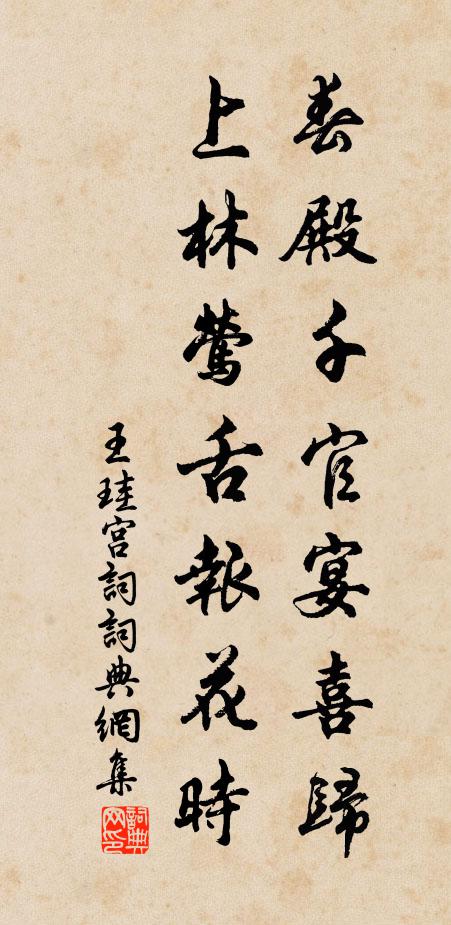 春殿千官宴喜歸
上林鶯舌報花時
王珪宮詞詞典網集
詞典网印